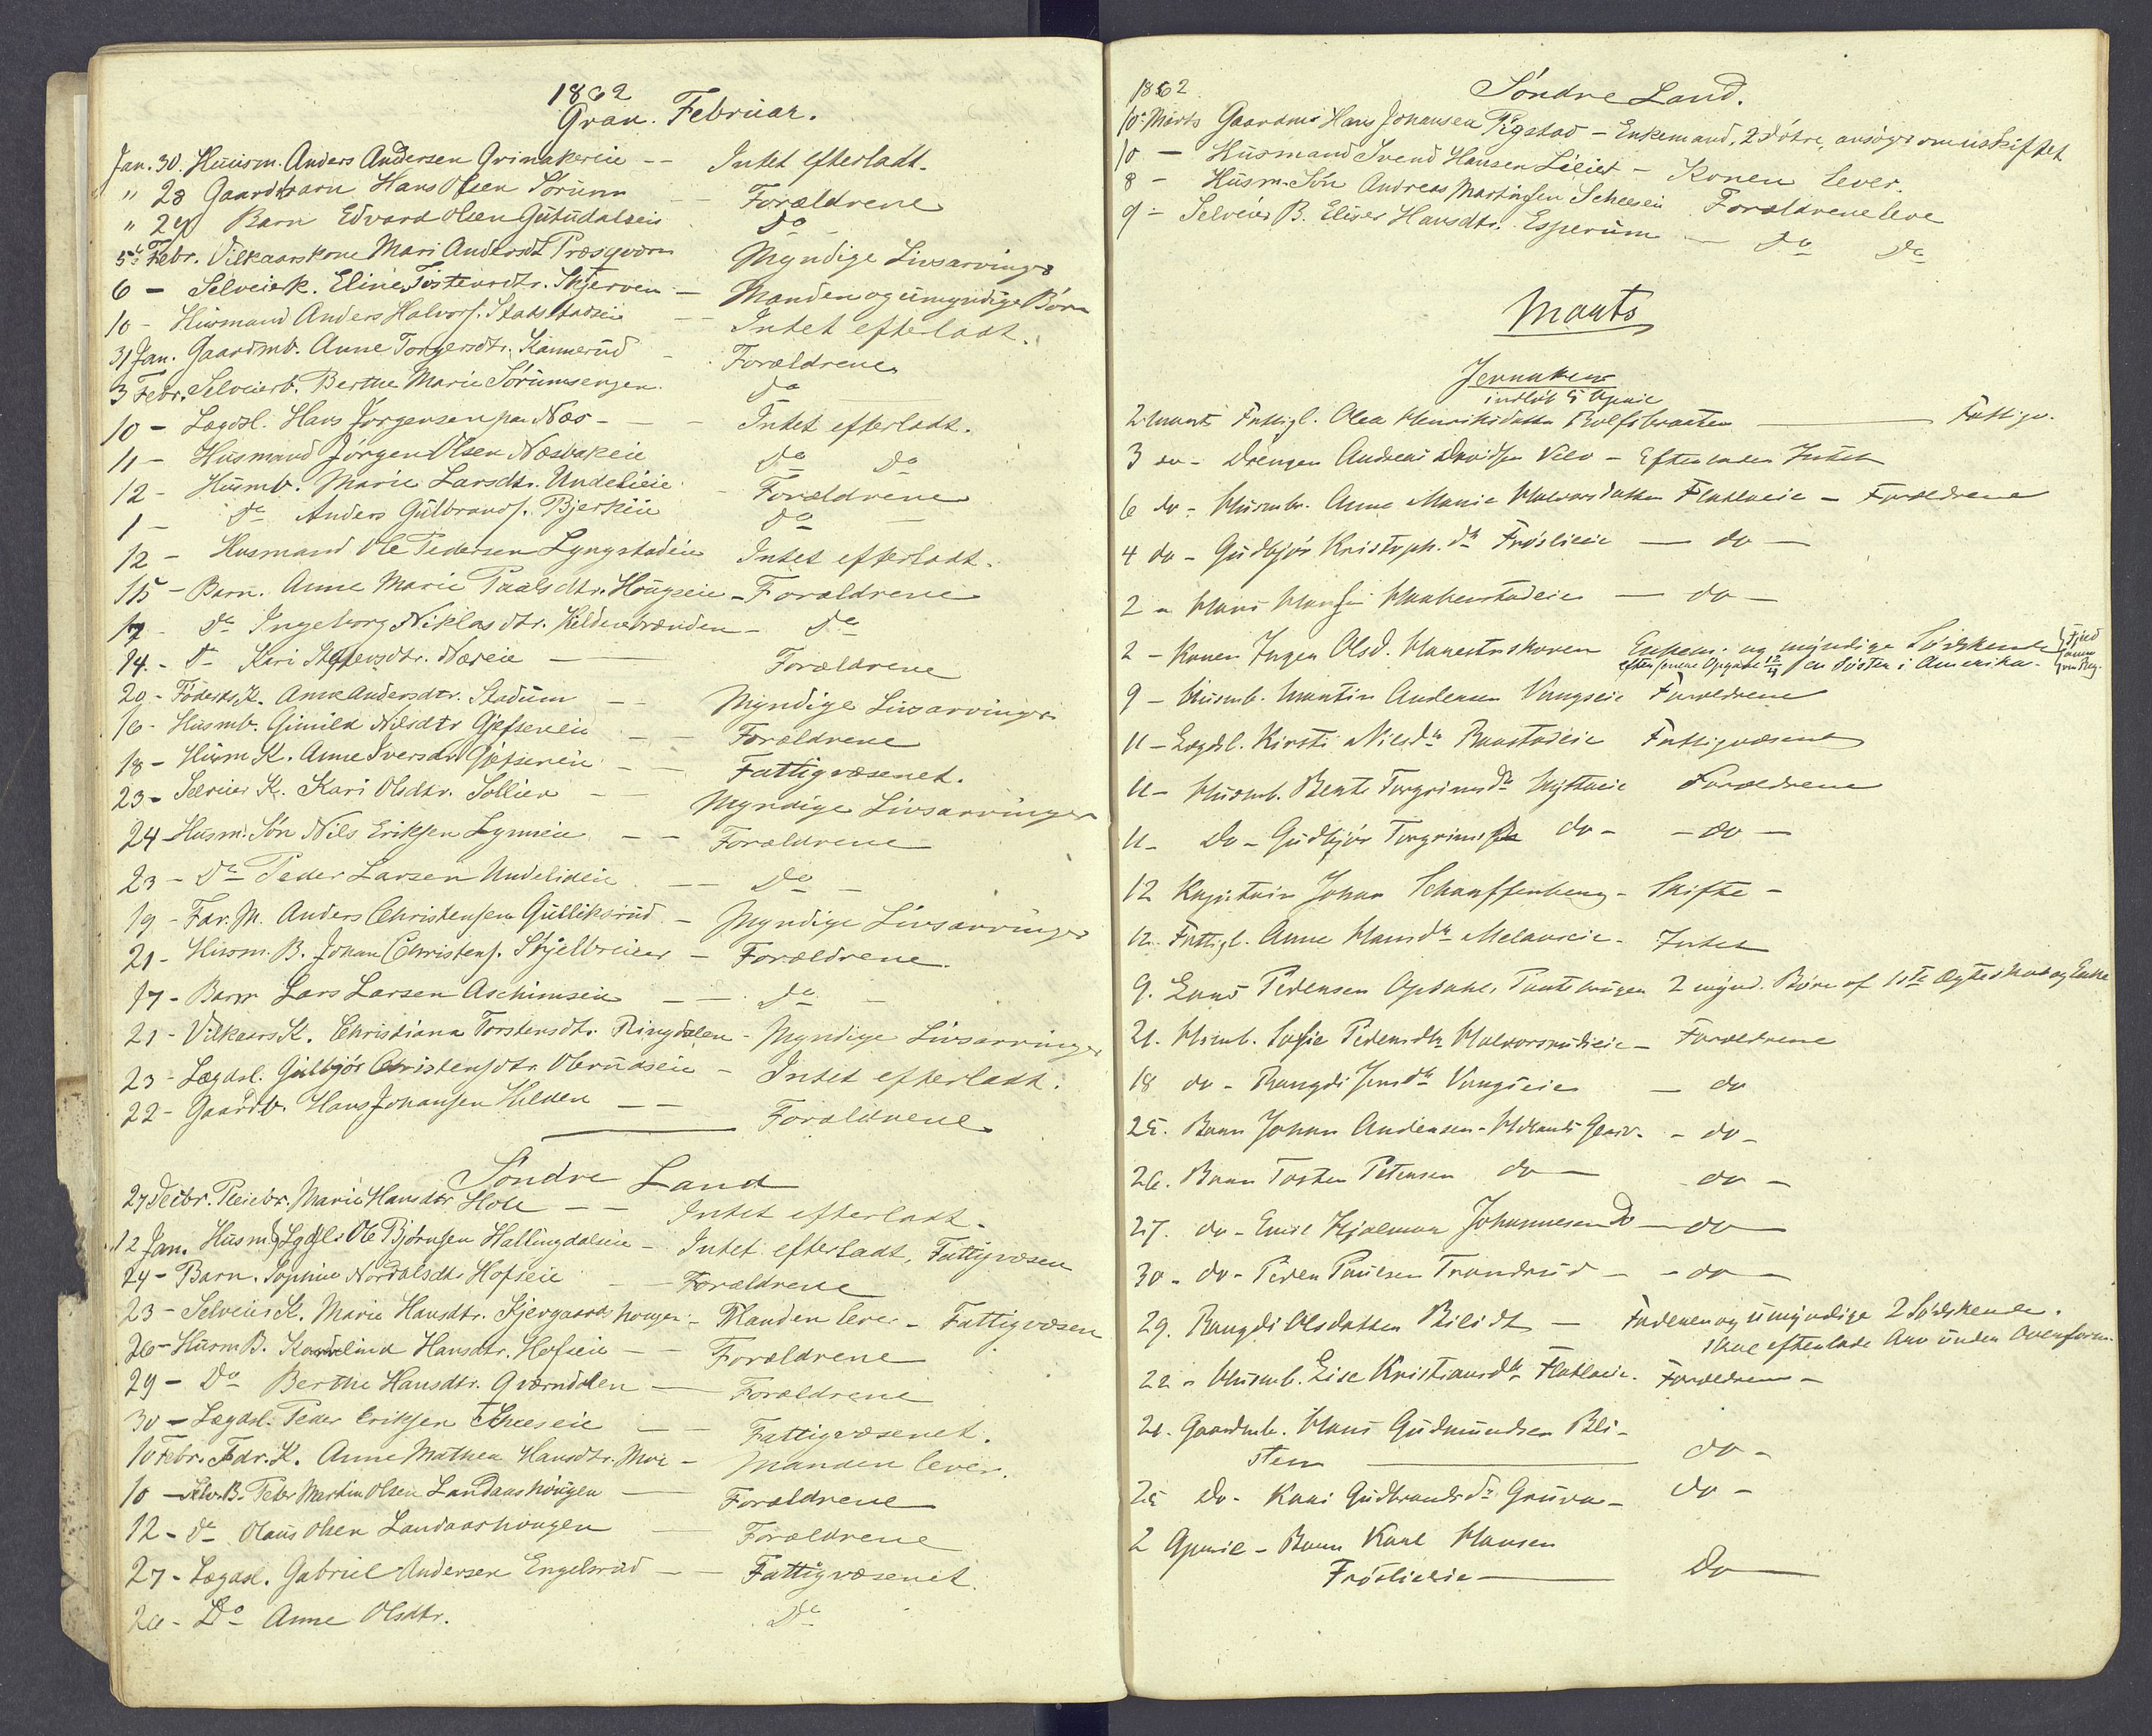 1862
Gran. Februar.
Jan. 30. Huusm. Anders Andersen Grinakereie -- Intet efterladt.
" 28 Gaardbarn Hans Olsen Sørum -- Forældrene
" 29 Barn Edvard Olsen Gutudalseie do
5te Febr. Vilkaarskone Mari Andersdt Præsqværn Myndige Livsarvinger
6 - Selveierk. Eline Tostensdtr. Skjerven - Manden og umyndige Børn
10 - Husmand Anders Halvors. Stadstadeie -- Intet efterladt.
31 Jan. Gaardmb. Anne Torgersdtr. Kannerud - Forældrene
3 Febr. Selveierb. Berthe Marie Sørumsengen. do
10 - Lægdsl. Hans Jørgensen paa Næs - - - Intet efterladt.
11 - Husmand Jørgen Olsen Næsbakeie do do
12 - Husmb. Marie Larsdtr. Undelieie - Forældrene
1 - do Anders Gulbrands. Bjerkeie do -
12 - Husmand Ole Pedersen Lyngstadeie Intet efterladt.
15 - Barn. Anne Marie Paalsdtr. Hougseie - Forældrene
17 - do Ingeborg Niklasdtr. Keldenbrænden - do
14. - do Kari Steffensdtr. Næseie -- Forældrene
20 - Føderks K. Anne Andersdtr. Stadum -- Myndige Livsarvinger
16 - Husmb. Gunild Nilsdtr Gjefseneie -- Forældrene
18 - Husm K. Anne Iversdtr Gjefseneie -- Fattigvæsenet.
23 - Selveier K. Kari Olsdtr. Sollien -- Myndige Livsarvinger
24 - Husm. Søn Nils Eriksen Lynneeie -- Forældrene
23 - do Peder Larsen Undelideie -- do -
19 - Før. M. Anders Christensen Gulliksrud - Myndige Livsarvinger
21 - Husm. B. Johan Christens. Skjelbreiеie - Forældrene.
17 - Barn Lars Larsen Aschimseie -- do -
21 - Vilkaars K. Christiana Torstensdtr. Ringdalen - Myndige Livsarvinger
23 - Lægdsl. Gulbjør Christensdtr. Olerudseie - Intet efterladt.
22 - Gaardb. Hans Johansen Hilden -- Forældrene
Søndre Land
27 Decbr. Pleiebr. Marie Hansdtr Hole -- Intet efterladt.
12 Jan. Husm & Lgdsl: Ole Bjørnsen Hallingdalseie - Intet efterladt, Fattigvæsen
24 - Barn. Sophie Nordalsdtr Hofseie -- Forældrene
23 - Selveier K. Marie Hansdtr. Kjergaardshougen - Manden lever - Fattigvæsen
26 - Husm B. Karolina Hansdtr. Hofseie -- Forældrene
29 - Do Berthe Hansdtr. Qværndalen -- Forældrene
30 - Lægdsl. Peder Eriksen Scheeseie -- Fattigvæsenet.
10 Febr. Fdr. K. Anne Mathea Hansdtr. Moe - Manden lever.
10 - Selv. B. Peder Martin Olsen Landaashougen -- Forældrene
12 - do Olaus Olsen Landaashougen -- Forældrene
27 - Lægdsl. Gabriel Andersen Engelsrud -- Fattigvæsenet.
20 - Do Anne Olsdtr. Do
1862 Søndre Land.
10. Marts Gaardm. Hans Johansen Tigstad - Enkemand, 2 døtre, ansøger om uskiftet
10 - Husmand Svend Hansen Lieiet - Konen lever.
8 - Husm. Søn Andreas Martinsen Scheeseie Forældrene leve
9 - Selveier B. Eliser Hansdtr. Esperum -- do do
Marts
Jevnaker
indløb 5 April
2 Marts Fattigl. Olea Henriksdatter Rolfsbraaten -- Fattigv.
3 do - Drengen Andreas Davidsen Velo - Efterlader Intet
6 do - Husmbr. Anne Marie Halvorsdatter Flatlaeie - Forældrene
4 do - Gudbjør Kristoph. dtr Frøslieie -- do --
2 - Hans Hansen Haakenstadeie -- do --
2 - Konen Inger Olsd. Hanestuskoven Enkem. og myndige Sødskende
efter senere Opgave 12/4 en Søster i Amerika.
9 - Husmb. Martin Andersen Vangseie Forældrene
11 - Lægdsl. Kirsti Nilsdtr Raastadeie Fattigvæsenet
11 - Husmb. Berte Torgrimsdtr Hytteeie Forældrene
11 - Do - Gudbjør Torgrimsdtr do - - do --
12 Kapitain Johan Scharffenberg - Skifte -
12. Fattigl. Anne Hansdtr Melaaseie - Intet
9. Lars Pedersen Opdahl, Tantehougen 2 mynd. Børn af 1ste Ægteskab og Enke
21. Husmb. Sofie Pedersdtr Halvorsrudeie - Forældrene
18 do - Rangdi Jensdtr Vangseie - do
25. Barn Johan Andersen - Hvdands Glasv. - do -
26. Barn Torsten Petersen do -- do -
27. do - Emil Hjalmar Johannesen Do -- do --
30 - do - Peder Paulsen Trandrud - - do --
29. Rangdi Olsdatter Bilidt -- Faderen og umyndige 2 Sødskende.
skal efterlade Arv under Overform.
22 - Husmb. Lise Kristiansdtr Flatlaeie. Forældrene -
21. Gaardmb. Hans Gudmundsen Bli-
sten -- do -
25 Do - Kari Gudbrandsdtr Gruva - do -
2 April - Barn Karl Hansen
Frøslieeie -- Do --